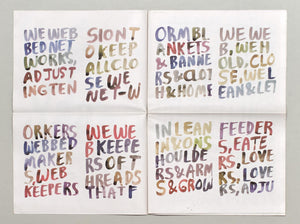 WE WEB
BED NET
WORKS,
ADJUST
ING TEN
SION T
O KEEP
ALL CLO
SE, WE
NET-W
ORM BL
ANKETS
& BANNE
RS & CLO
TH & HOME
WE WE
B, WE H
OLD, CLO
SE, WE L
EAN & LET
ORKERS
WEBBED
MAKER
S, WEB
KEEPERS
WE WE
B KEEPE
RS OF T
HREADS
THAT F
IN LEAN
IN & ON S
HOULDE
RS & ARM
S & GROW
FEEDER
S, EATE
RS, LOVE
RS, LOVE
RS, ADJU